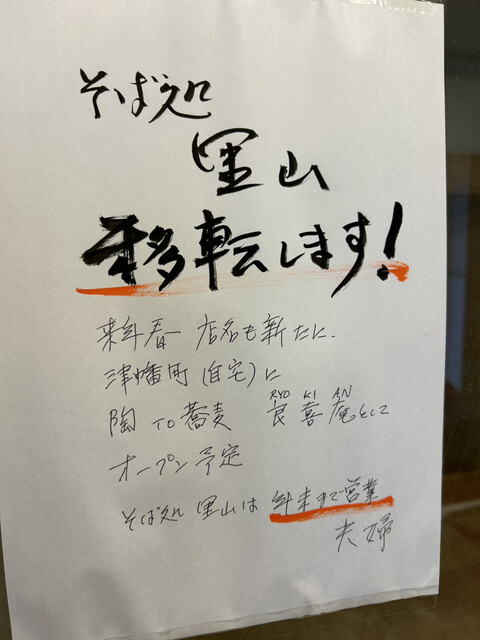 そば処
里山
移転します!
来年春 店名も新たに.
津幡町(自宅)に
RYO KI AN
陶 TO 蕎麦 良喜庵として
オープン予定
そば処 里山は 年末まで営業
夫婦